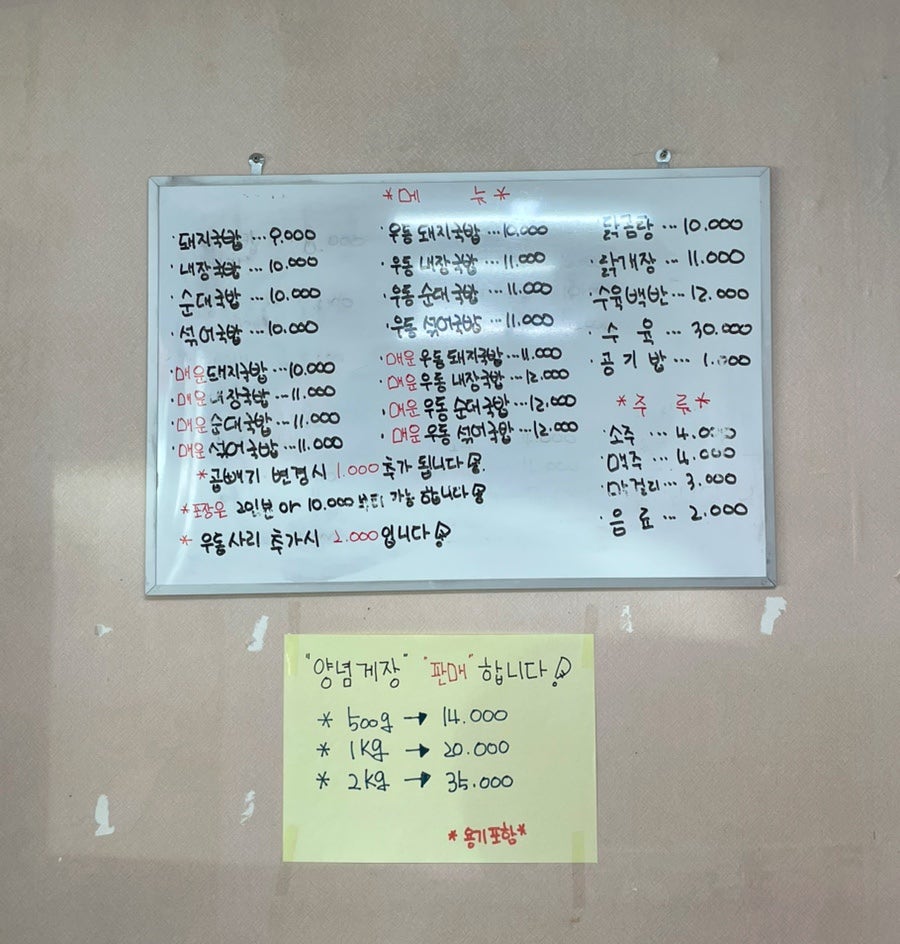 *메 뉴*
· 돼지국밥 ... 9.000
· 내장국밥 ... 10.000
· 순대국밥 ... 10.000
· 섞어국밥 ... 10.000
· 매운돼지국밥 ... 10.000
· 매운내장국밥 ... 11.000
· 매운순대국밥 ... 11.000
· 매운섞어국밥 ... 11.000
*곱빼기 변경시 1.000 추가 됩니다!
*포장은 2인분 or 10.000 부터 가능합니다!
* 우동사리 추가시 2.000입니다!
· 우동 돼지국밥 ... 10.000
· 우동 내장국밥 ... 11.000
· 우동 순대국밥 ... 11.000
· 우동 섞어국밥 ... 11.000
· 매운우동돼지국밥 ... 11.000
· 매운우동 내장국밥 ... 12.000
· 매운우동 순대국밥 ... 12.000
· 매운우동 섞어국밥 ... 12.000
· 닭곰탕 ... 10.000
· 닭개장 ... 11.000
· 수육백반 ... 12.000
· 수 육 ... 30.000
· 공기밥 ... 1.000
*주 류*
· 소주 ... 4.000
· 맥주 ... 4.000
· 막걸리 ... 3.000
· 음료 ... 2.000
"양념게장" "판매"합니다!
* 500g → 14.000
* 1kg → 20.000
* 2kg → 35.000
*용기포함*